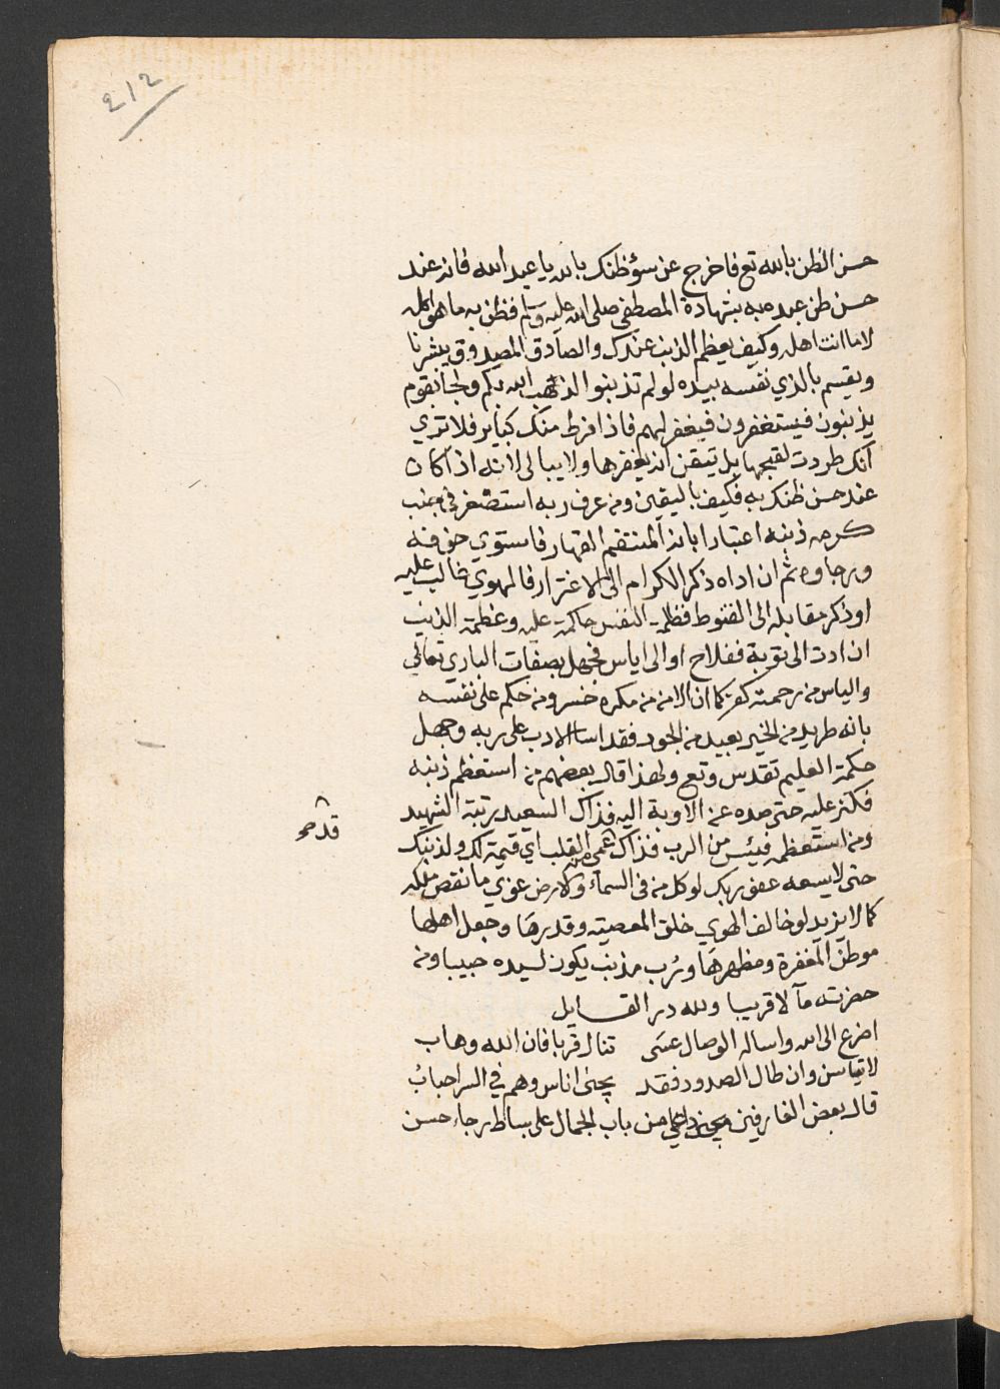 212
حسن الظن بالله تع فاخرج عن سؤ ظنك بالله يا عبد الله فانه عند
حسن ظن عبده به بشهادة المصطفى صلى الله عليه وسلم فظن به ما هو اهله
لا ما انت اهله وكيف يعظم الذنب عندك والصادق المصدوق يبشرنا
ويقسم بالذي نفسه بيده لو لم تذنبوا لذهب الله بكم ولجا بقوم
يذنبون فيستغفرون فيغفر لهم فاذا فرط منك كباير فلا تري
انك طردت لقبحها بل تيقن انه يغفرها ولا يبالى لانه اذا كان
عند حسن ظنك به فكيف باليقين ومن عرف ربه استصغر في جنب
كرمه ذنبه اعتبارا بانه المنتقم القهار فاستوي خوفه
ورجاوه ثم ان اداه ذكر الكرام الى الاغترار فالهوي غالب عليه
او ذكر مقابله الى القنوط فظلمة النفس حاكمة عليه وعظمة الذنب
ان ادت الى توبة ففلاح او الى اياس فجهل بصفات الباري تعالي
والياس من رحمته كفر كما ان الامن من مكره خسر ومن حكم على نفسه
بانه طريد من الخير بعيد من الجود فقد اسا الادب على ربه وجهل
حكمة العليم تقدس وتع ولهذا قال بعضهم من استعظم ذنبه
فكبر عليه حتى صده عن الاوبة اليه فذاك السعيد رتبة الشهيد
ومن استعظمه فيئس من الرب فذاك عمي القلب اي قيمة لك ولذنبك
قدمه
حتى لا يسعه عفو ربك لو كل من في السماء والارض غوي ما نقص ملكه
كما لا يزيد لو خالف الهوي خلق المعصيته وقدرها وجعل اهلها
موطن المغفرة ومظهرها ورب مذنب يكون لسيده حبيبا ومن
حضرته مآلا قريبا ولله در القايل
اضرع الى الله واساله الوصال عسى تنال قربا فان الله وهاب
لا تياسن وان طال الصدود فقد يجفى اناس وهم في السر احباب
قال بعض العارفين من باب الجمال على بساط رجاء حسن